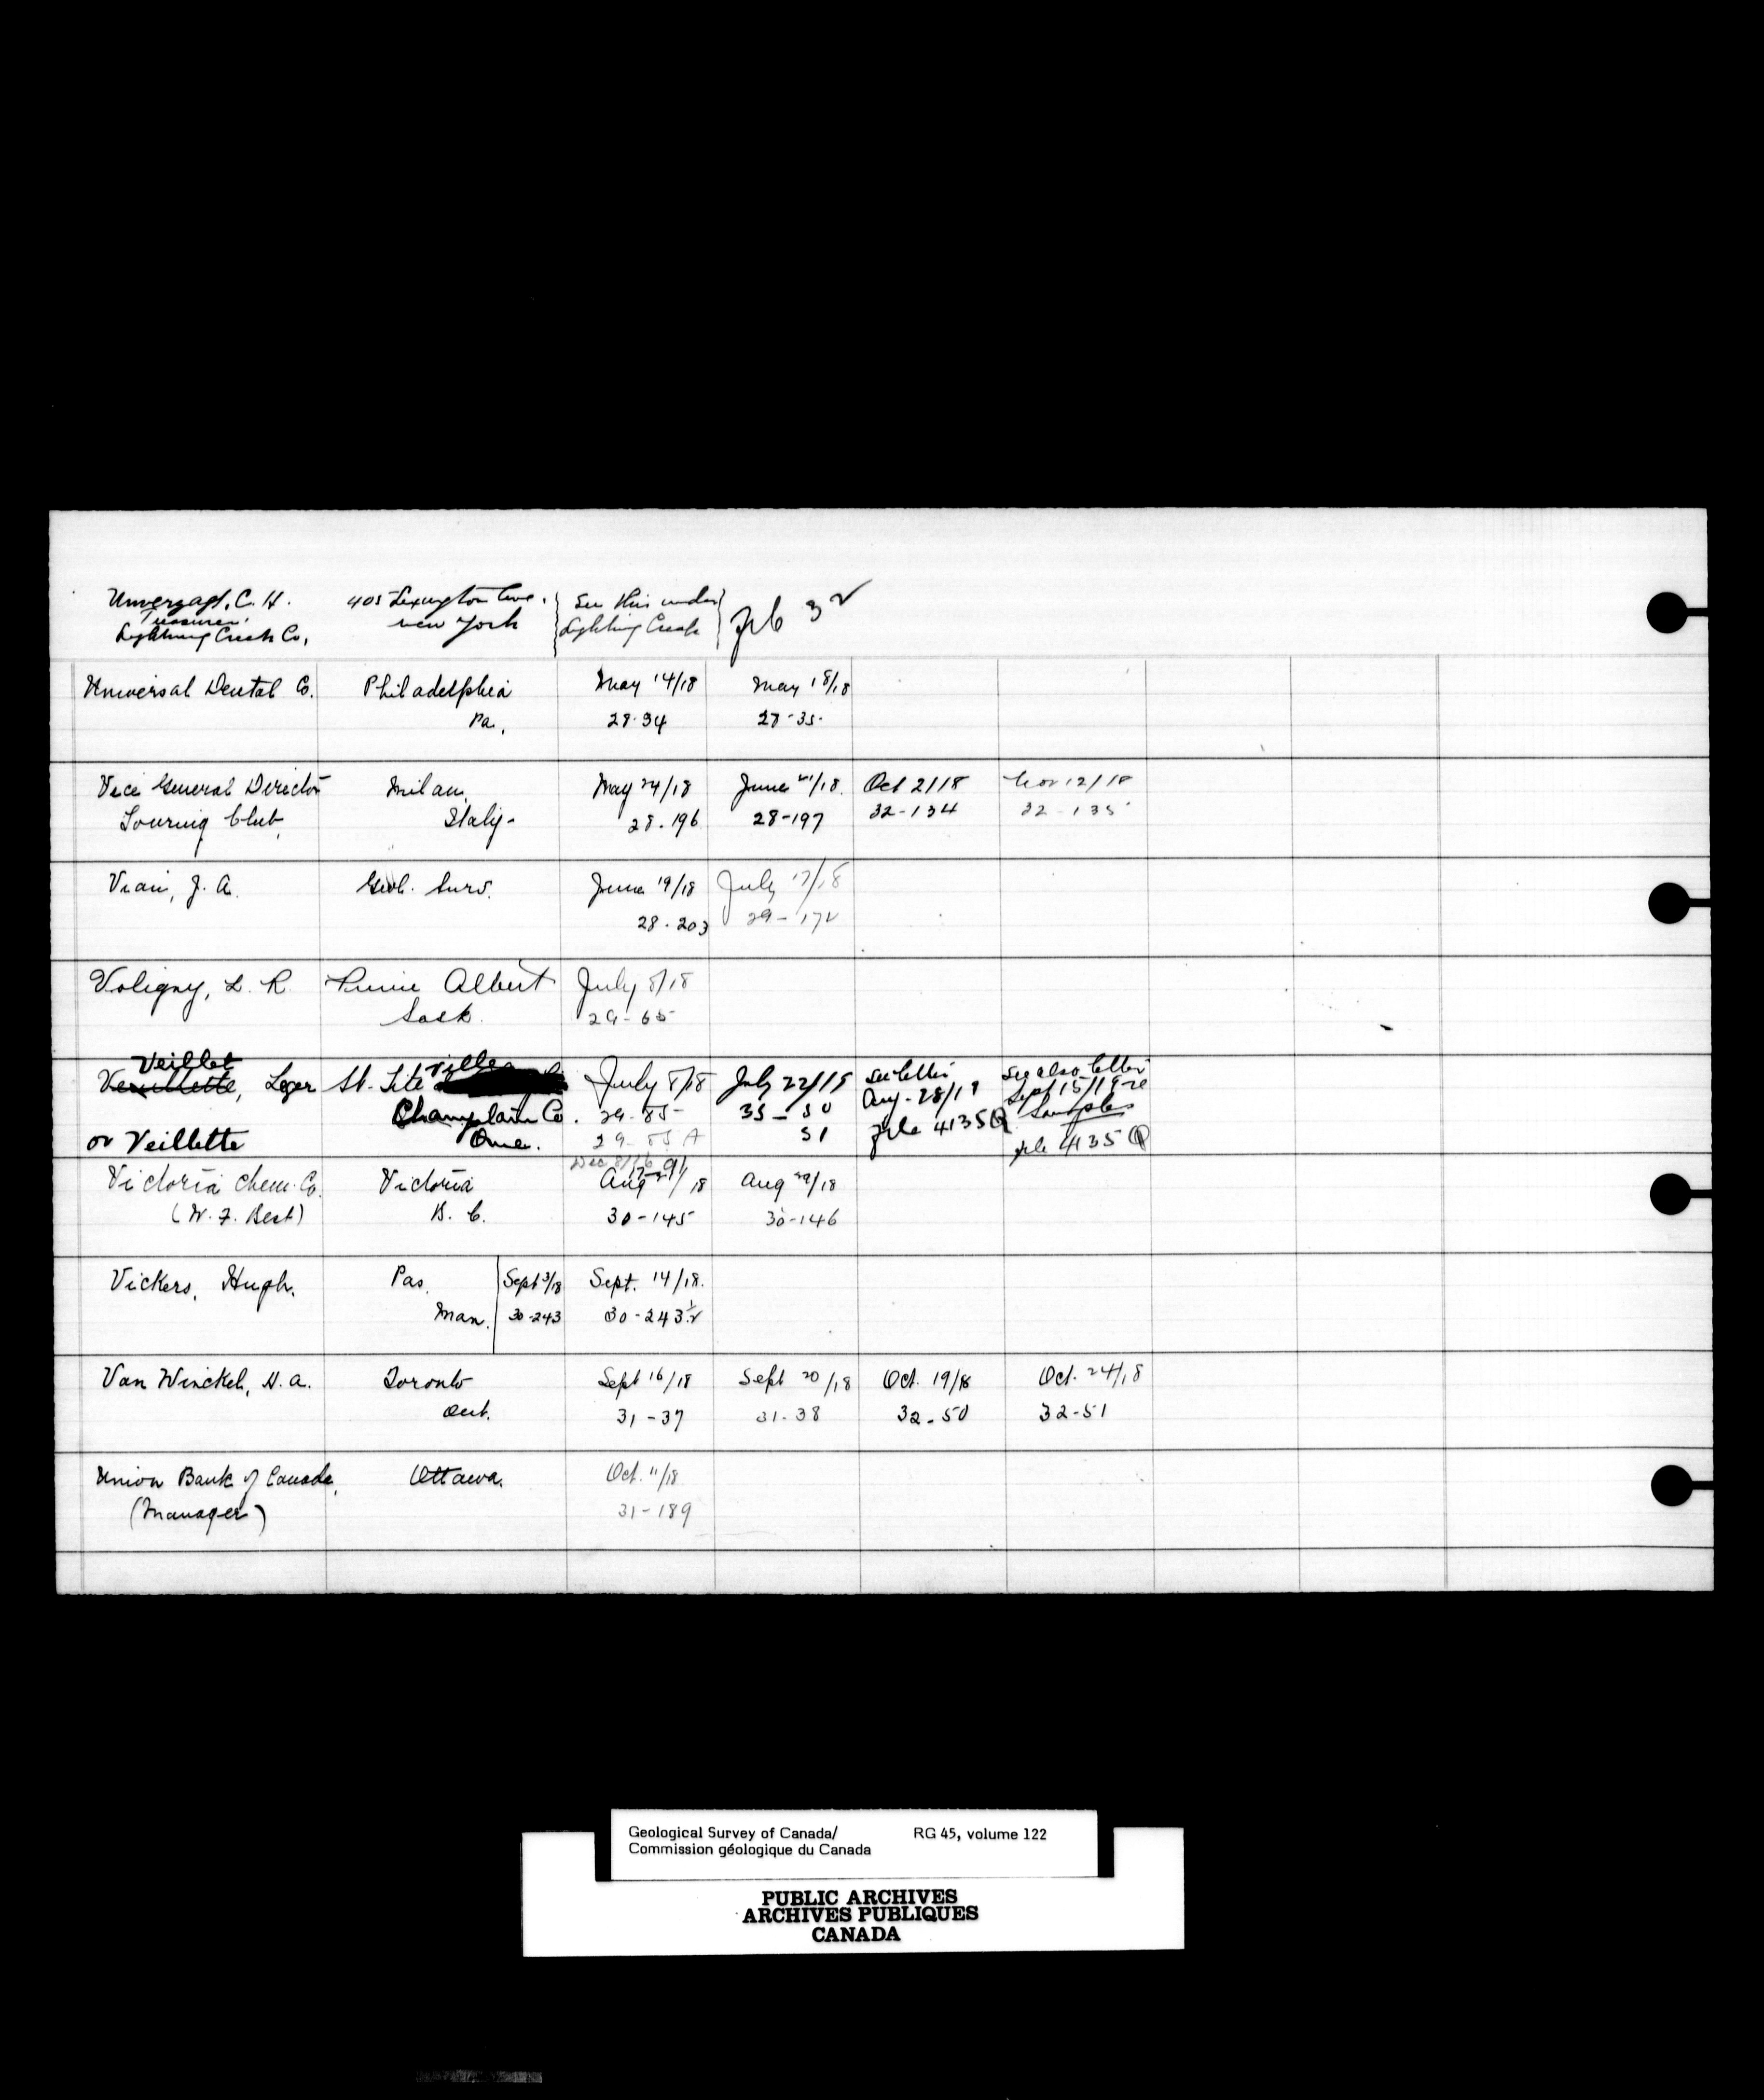 Unverzagt, C. H. 405 Lexington Ave. See this under
Treasurer, New York Lightning Creek
Lightning Creek Co,
Universal Dental Co. Philadelphia May 14/18 May 18/18
Pa. 28-34 28-35
Vice General Director Milan, May 24/18 June 21/18 Oct 2/18 Nov 12/18
Touring Club Italy 28-196 28-197 32-134 32-135
J. A. Geol. Surv. June 19/18 July 17/18
28-203 29-172
Voligny, L. R. Prince Albert July 8/18
Sask. 29-65
Veillet
Leger St. Tite July 8/18 July 22/19 See letter See also letter
Champlain Co. 29-85 35-50 Aug-28/19 Sept 15/19 re
or Veillette Que. 29-85 A 51 file 4135Q Samples
file 4135Q
Victoria Chem. Co. Victoria Aug Aug 29/18
(W. F. Best) B. C. 30-145 30-146
Vickers, Hugh. Pas, Sept 3/18 Sept. 14/18.
Man. 30-243 30-243½
Van Winckel, H. A. Toronto Sept 16/18 Sept 20/18 Oct. 19/18 Oct. 24/18
Ont. 31-37 31-38 32-50 32-51
Union Bank of Canada, Ottawa. Oct. 11/18
(Manager) 31-189
Geological Survey of Canada/ RG 45, volume 122
Commission géologique du Canada
PUBLIC ARCHIVES
ARCHIVES PUBLIQUES
CANADA